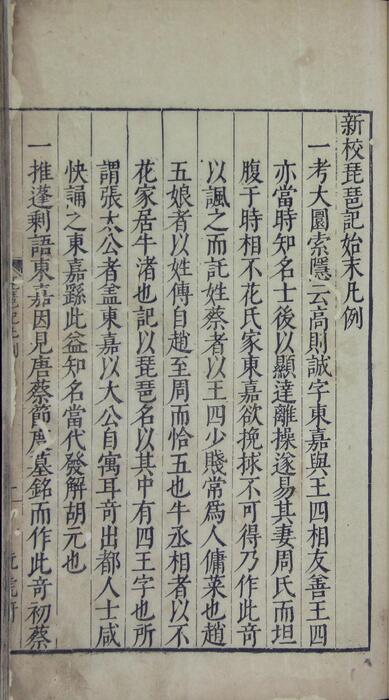 新校琵琶記始末凡例
一考大圜索隱云高則誠字東嘉與王四相友善王四
亦當時知名士後以顯達離操遂易其妻周氏而坦
腹于時相不花氏家東嘉欲挽捄不可得乃作此奇
以諷之而託姓蔡者以王四少賤常爲人傭菜也趙
五娘者以姓傳自趙至周而恰五也牛丞相者以不
花家居牛渚也記以琵琶名以其中有四王字也所
謂張太公者盖東嘉以大公自寓耳奇出都人士咸
快誦之東嘉繇此益知名當代發解胡元也
一推蓬剩語東嘉因見唐蔡節度墓銘而作此奇初蔡